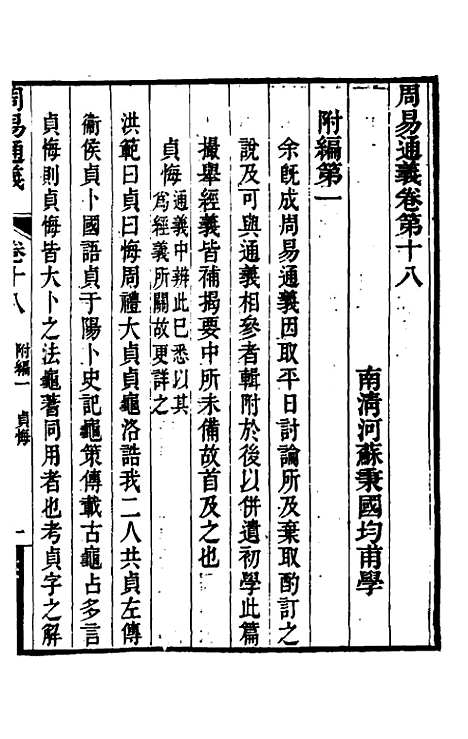 周易通義卷第十八
南清河蘇秉國均甫學
附編第一
余旣成周易通義因取平日討論所及棄取酌訂之
說及可與通義相參者輯附於後以併遺初學此篇
撮舉經義皆補揭要中所未備故首及之也
貞悔
通義中辨此已悉以其
爲經義所關故更詳之
洪範曰貞曰悔周禮大貞貞龜洛誥我二人共貞左傳
衞侯貞卜國語貞于陽卜史記龜策傳載古龜占多言
貞悔則貞悔皆大卜之法龜蓍同用者也考貞字之解
周易通義
卷十八
附編一
貞悔
一